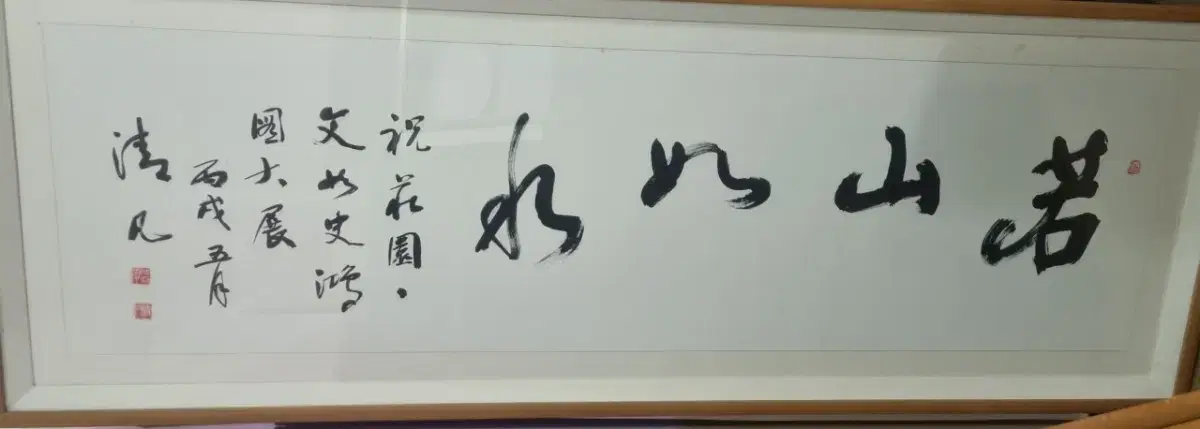 若山如水
祝 莊園、
文如史鴻
圖大展
丙戌 五月
清凡